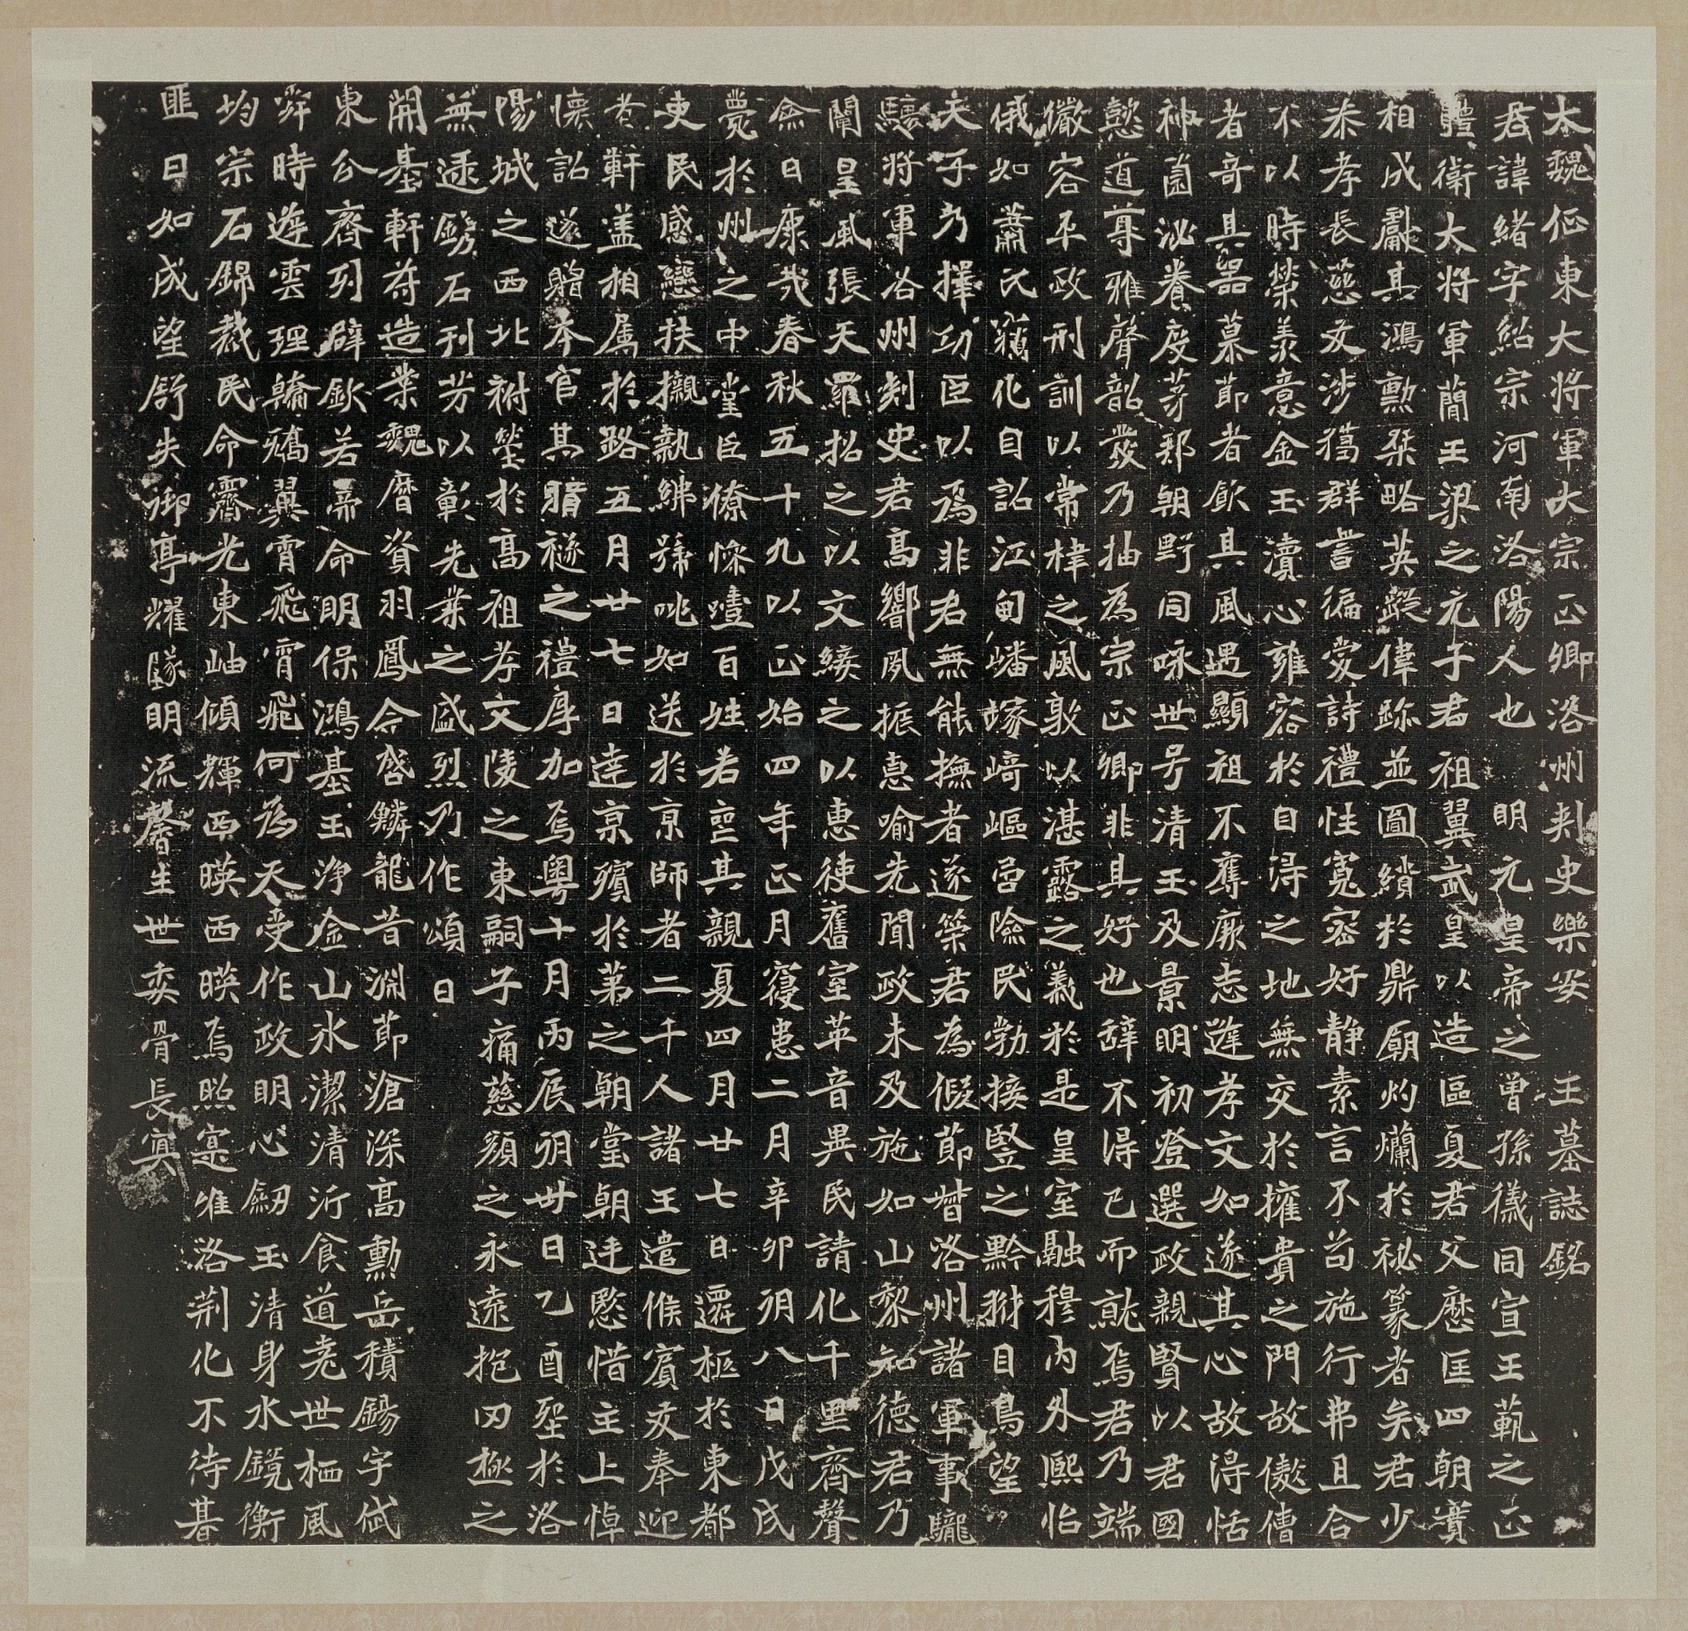 太魏征東大將軍大宗正卿洛州刾史樂安王墓誌銘
君諱緒字紹宗河南洛陽人也明元皇帝之曾孫儀同宣王範之正
體衛大將軍簡王梁之元子君祖翼武皇以造區夏君父歷匡四朝寔
相成獻其鴻勳桀略英蹤偉跡並圖績於鼎廟灼爛於秘篆者矣君少
恭孝長慈友涉獵群書徧愛詩禮性寬密好靜素言不苟施行弗且合
不以時榮羨意金玉瀆心雍容於自得之地無交於擁貴之門故傲僐
者奇其器慕節者飲其風遇顯祖不奪厥志逢孝文如遂其心故得恬
神園泌養度茅邦朝野同咏世号清王及景明初登選政親賢以君國
懿道尊雅聲韶發乃抽為宗正卿非其好也辭不得已而就焉君乃端
儼容平政刑訓以常棣之風敦以湛露之義於是皇室融穆內外熙怡
俄如蕭氏竊化自詔江甸嶓塚崎嶇負險民勃接豎之黔列目鳥望
天子乃擇功臣以為非君無能撫者遂策君為假節督洛州諸軍事龍
驤將軍洛州刾史君高嚮夙振惪喻先聞政未及施如山黎知德君乃
闡皇風張天羅招之以文綏之以惠使舊室革音異民請化千里齊聲
僉曰康哉春秋五十九以正始四年正月寑患二月辛卯朔八日戊戌
薨於州之中堂臣僚慘噎百姓若喪其親夏四月廿七日遷柩於東都
吏民感戀扶櫬執紼號咷如送於京師者二千人諸王遣候賓友奉迎
者軒盖相屬於路五月廿七日達京殯於第之朝堂朝廷愍惜主上悼
懷詔遂贈夲官其賵襚之禮厚加焉粵十月丙辰朔卅日乙酉窆於洛
陽城之西北祔塋於高祖孝文陵之東嗣子痛慈顏之永遠抱罔極之
無逯鐫石刊芳以彰先業之盛烈乃作頌曰
開基軒符造業魏曆資羽鳳令啓鱗龍昔淵節滄深高勳岳積錫字岱
東分齊列辟欽若帝命明保鴻基玉淨金山水潔清沂飡道堯世栖風
舜時逄雲理翰矯翼霄飛霄飛何為天受作政明心劒玉清身水鏡衡
均宗石錦裁民命霽光東岫傾輝西暎西暎焉照寔維洛荊化不待朞
匪日如成望舒失御亭耀隊明流馨生世委骨長冥